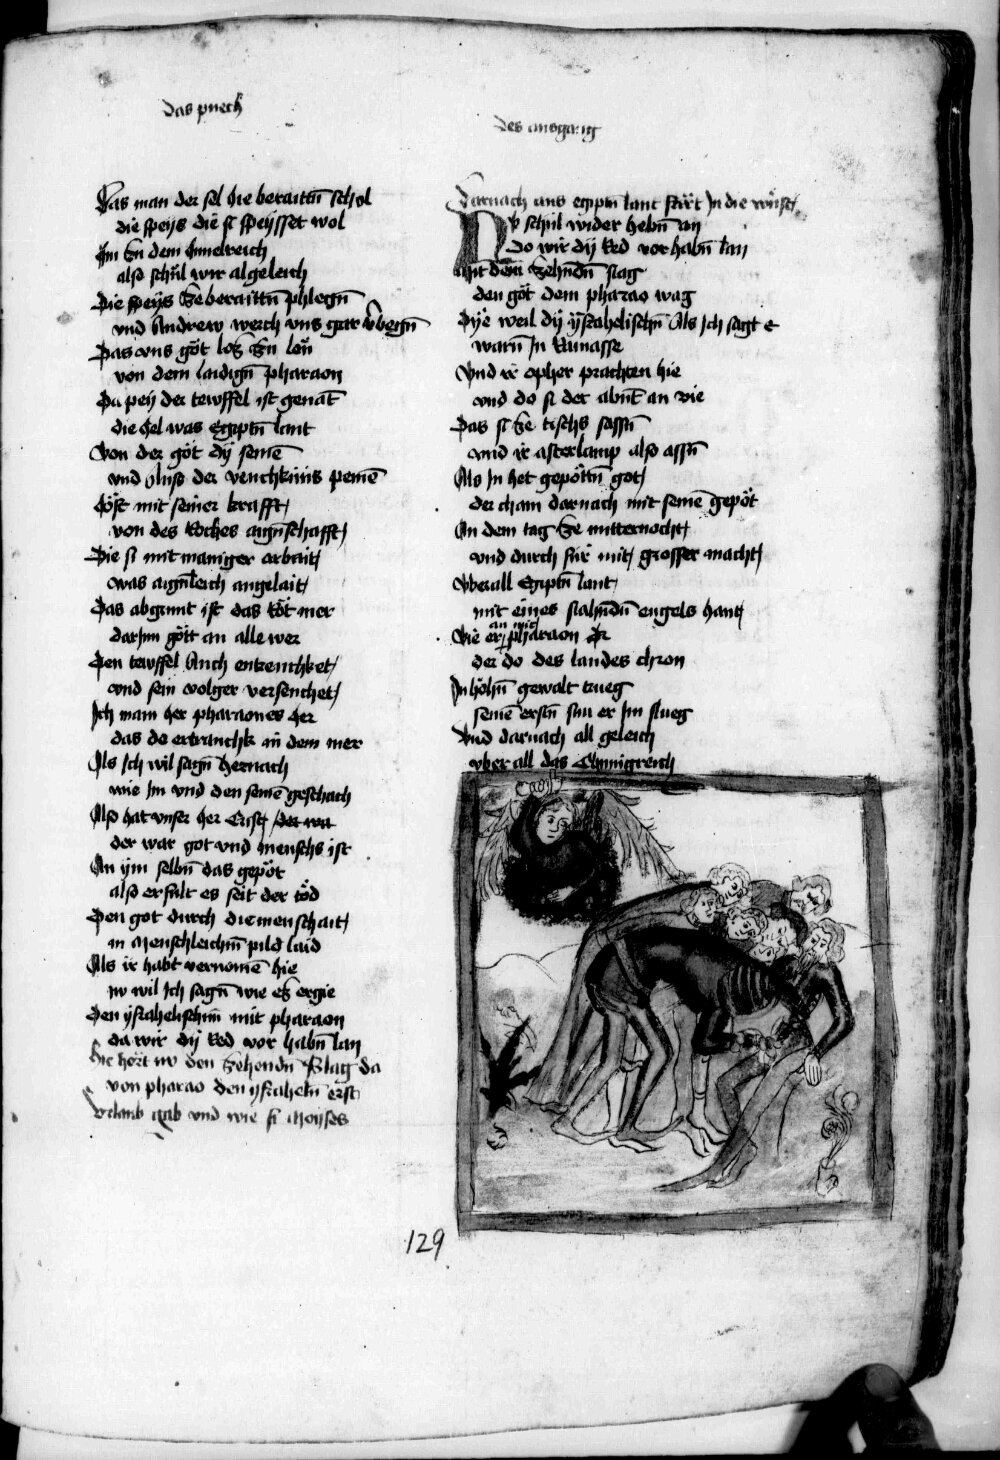 das puech
des ausgang
Das man der sel die beraittn̄ schol
die speys die si speysset wol
Im zu dem himelreich
also schul wir algeleich
Die speys ze beraittn̄ phlegn̄
vnd Andrew werch vns gar v̂begn̄
Das vns göt los zu leü
von dem laidign̄ pharaon
Da pey der tewffel ist genāt
die hel was Egiptn̄ lant
Von der göt dy̆ semē
vnd Auss der venchknüs pemē
Löst mit seiner krafft
von des Roches aign̄schafft
Die si mit maniger arbait
was aign̄leich angelait
Das abgrunt ist das Röt mer
darInn gött an alle wer
Den tewffel Auch entzenchket
vnd sein volger versenchet
Ich main her pharaones her
das do ertranchk in dem mer
Als Ich wil sagn̄ hernach
wie Im vnd den semē geschach
Also hat vnser her Crist der wa
der war got vnd menschs ist
An ym selbn̄ das gepöt
also erfult es seit der töd
Den got durch die menschait
in Menschleichm̄ pild laid
Als ir habt vernomē hie
nv wil Ich sagn̄ wie es ergie
Den ysrahelischm̄ mit pharaon
da wir dy̆ Red vor habn̄ lan
Hie hört nv den zehendn̄ Plag da
von pharao den ysraheln̄ erst
Vrlaub gab vnd wie si Moyses
Darnach aus egiptn̄ lant fürt In die wüst
Nv schul wider hebn̄ an
Do wir dy̆ Red vor habn̄ lan
Mit dem zehndn̄ slag
den göt dem pharao wag
Dye weil dy̆ ysrahelischn̄ Als Ich sagt e
warn̄ In Ramasse
Vnd ir opher prachten hie
vnd do si der abnt̄ an vie
Das si ze tischs sassn̄
vnd ir asterlamp also assn̄
Als In het gepöttn̄ got
der cham darnach mit semē gepöt
An dem tag ze mitternocht
vnd durch für mit grosser macht
Vberall Egiptn̄ lant
mit eines slahndn̄ engels hant
an mit
Wie er pharaon
der do des landes chron
In höhn̄ gewalt trueg
semē erstn̄ sun er Im slueg
Vnd darnach all geleich
vber all das Chunigreich
129